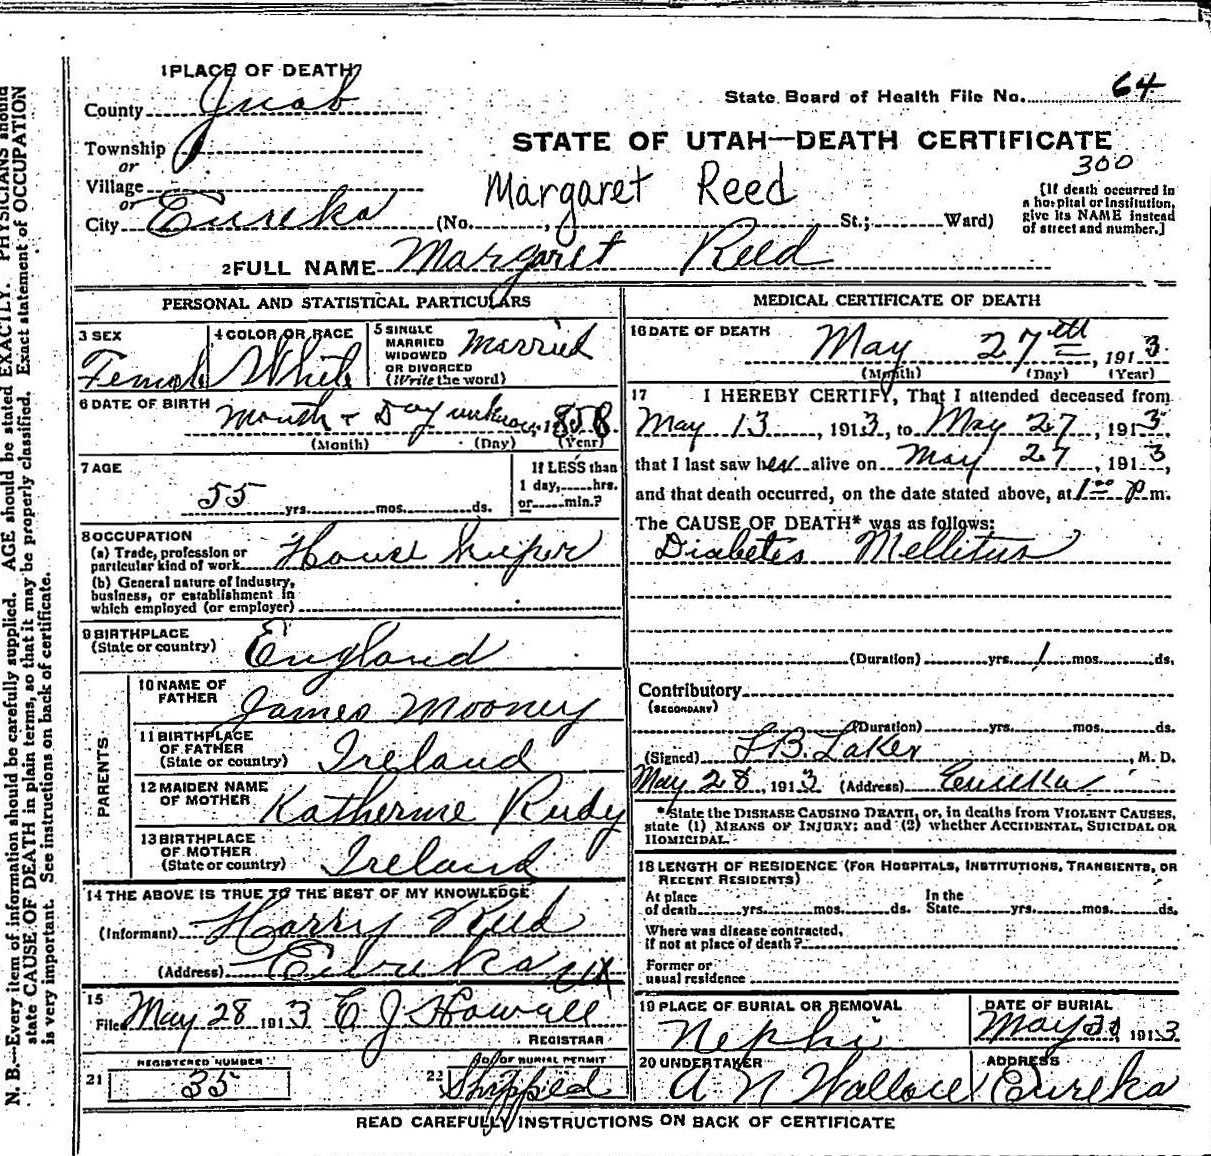 1 PLACE OF DEATH
County Juab
State Board of Health File No. 64
Township
or
Village
or
City Eureka
STATE OF UTAH—DEATH CERTIFICATE
300
Margaret Reed
(No. , St.; Ward)
[If death occurred in
a hospital or institution,
give its NAME instead
of street and number.]
2 FULL NAME Margaret Reed
PERSONAL AND STATISTICAL PARTICULARS
3 SEX
Female
4 COLOR OR RACE
White
5 SINGLE
MARRIED
WIDOWED
OR DIVORCED
(Write the word)
Married
6 DATE OF BIRTH
Month + Day unknown, 1858
(Month) (Day) (Year)
7 AGE
55 yrs. mos. ds.
If LESS than
1 day, hrs.
or min.?
8 OCCUPATION
(a) Trade, profession or
particular kind of work House Keeper
(b) General nature of Industry,
business, or establishment in
which employed (or employer)
9 BIRTHPLACE
(State or country) England
PARENTS
10 NAME OF
FATHER James Mooney
11 BIRTHPLACE
OF FATHER
(State or country) Ireland
12 MAIDEN NAME
OF MOTHER Katherine Rudy
13 BIRTHPLACE
OF MOTHER
(State or country) Ireland
14 THE ABOVE IS TRUE TO THE BEST OF MY KNOWLEDGE
(Informant) Harry Reed
(Address) Eureka
15
Filed May 28 1913 E J Howell
REGISTRAR
REGISTERED NUMBER
21 35
22 NO. OF BURIAL PERMIT
Shipped
MEDICAL CERTIFICATE OF DEATH
16 DATE OF DEATH
May 27th, 1913
(Month) (Day) (Year)
17 I HEREBY CERTIFY, That I attended deceased from
May 13, 1913, to May 27, 1913,
that I last saw her alive on May 27, 1913,
and that death occurred, on the date stated above, at 1:00 P.m.
The CAUSE OF DEATH* was as follows:
Diabetes Mellitus
(Duration) yrs. 1 mos. ds.
Contributory
(SECONDARY)
(Duration) yrs. mos. ds.
(Signed) L.B. Laker, M. D.
May 28, 1913 (Address) Eureka
*State the DISEASE CAUSING DEATH, or, in deaths from VIOLENT CAUSES,
state (1) MEANS OF INJURY; and (2) whether ACCIDENTAL, SUICIDAL OR
HOMICIDAL.
18 LENGTH OF RESIDENCE (FOR HOSPITALS, INSTITUTIONS, TRANSIENTS, OR
RECENT RESIDENTS)
At place
of death yrs. mos. ds.
In the
State yrs. mos. ds.
Where was disease contracted,
if not at place of death?
Former or
usual residence
19 PLACE OF BURIAL OR REMOVAL
Nephi
DATE OF BURIAL
May 1913
20 UNDERTAKER
A N Wallace
ADDRESS
Eureka
READ CAREFULLY INSTRUCTIONS ON BACK OF CERTIFICATE
N. B.—Every item of information should be carefully supplied. AGE should be stated EXACTLY. PHYSICIANS should
state CAUSE OF DEATH in plain terms, so that it may be properly classified. Exact statement of OCCUPATION
is very important. See instructions on back of certificate.